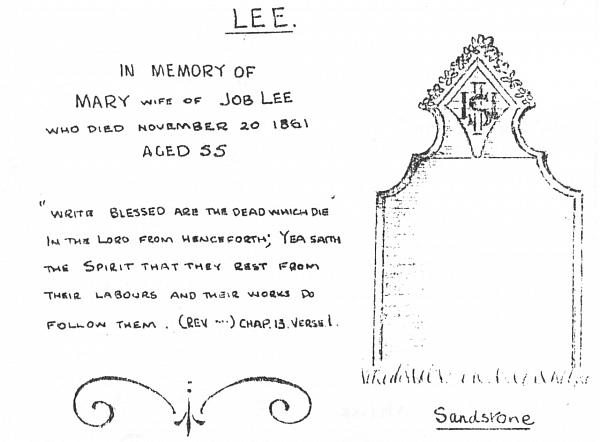 LEE.
IN MEMORY OF
MARY WIFE OF JOB LEE
WHO DIED NOVEMBER 20 1861
AGED 55
"WRITE BLESSED ARE THE DEAD WHICH DIE
IN THE LORD FROM HENCEFORTH; YEA SAITH
THE SPIRIT THAT THEY REST FROM
THEIR LABOURS AND THEIR WORKS DO
FOLLOW THEM. (REV ...) CHAP. 13. VERSE 1.
IHS
Sandstone